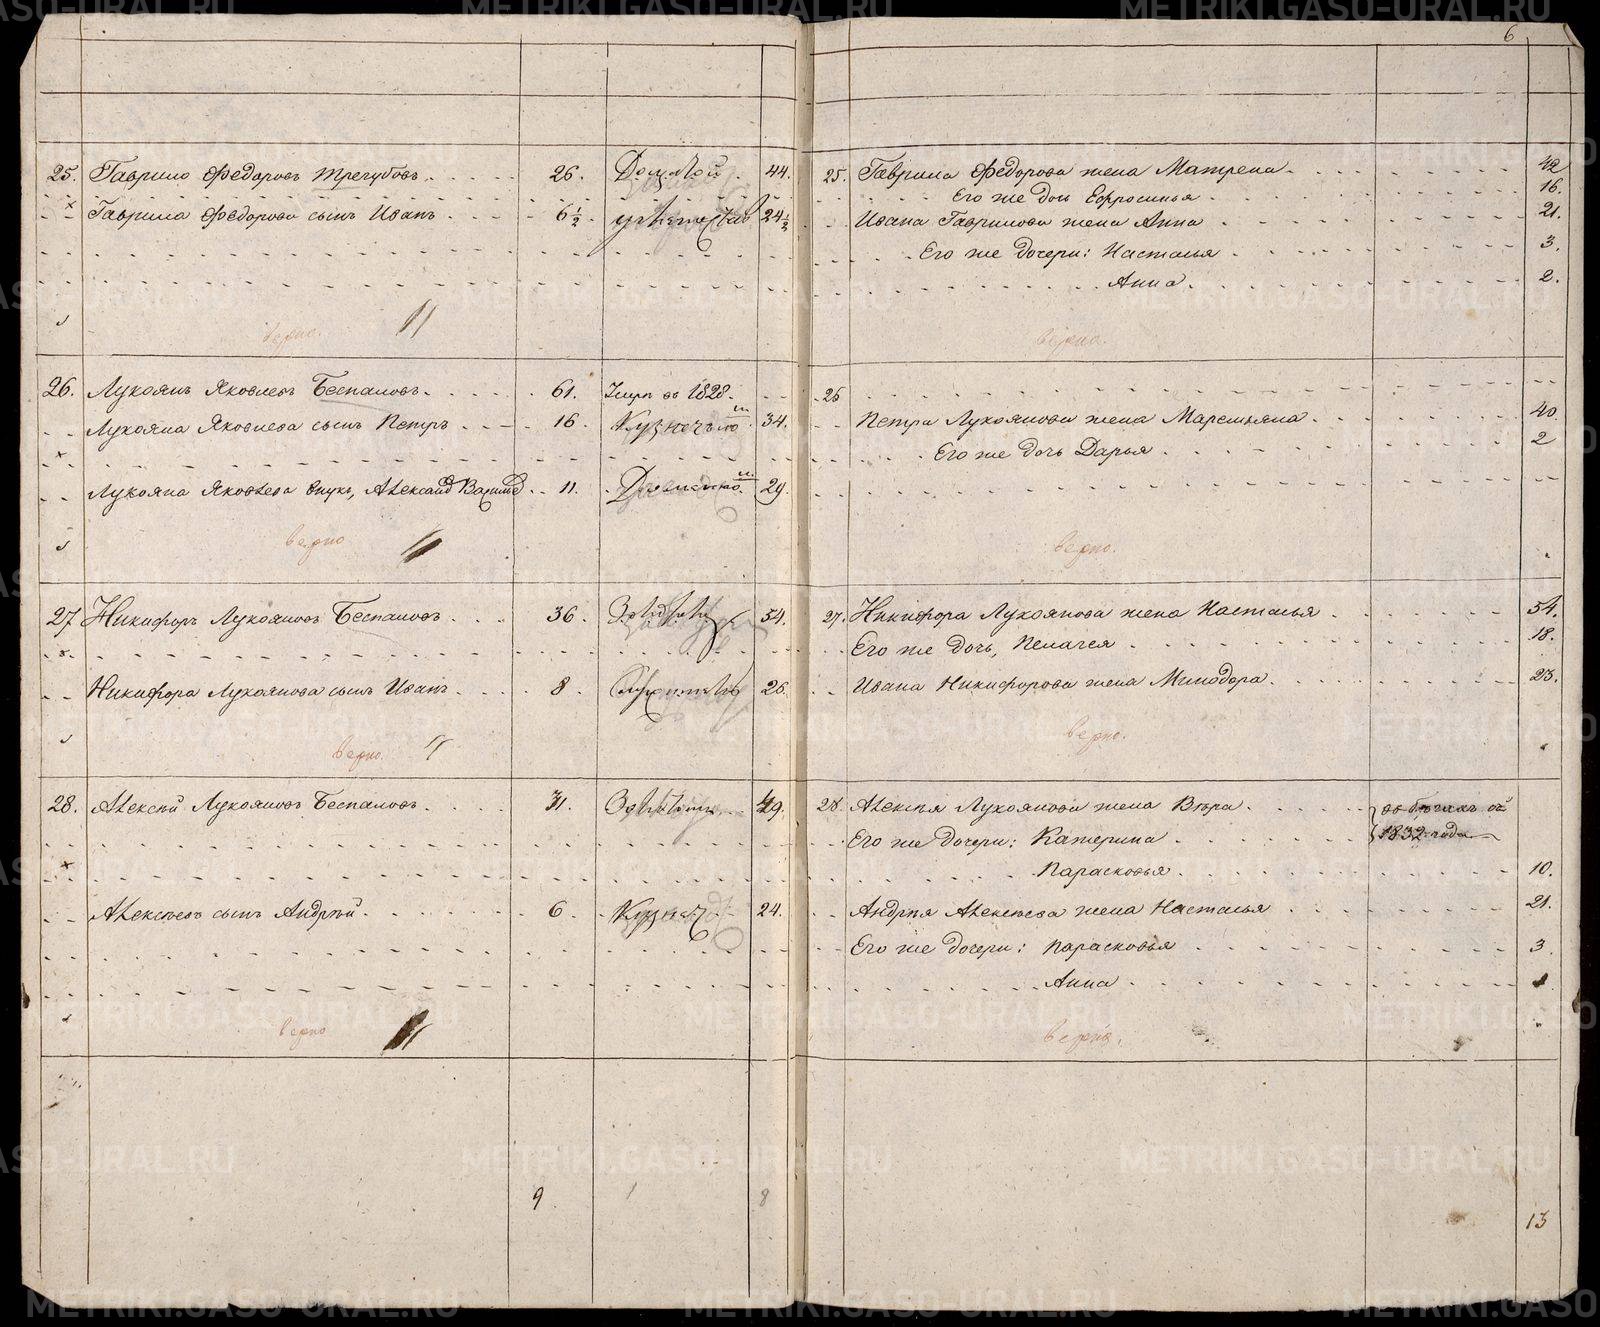 25. Гаврило Федоровъ Трегубовъ 26. 44.
Гаврила Федорова сынъ Иванъ 6½ 24½
верно.
26. Лукоянъ Яковлевъ Беспаловъ. 61. Умре въ 1828.
Лукояна Яковлева сынъ Петръ 16 34.
Лукояна Яковлева внукъ, 11. 29.
верно
27 Никифоръ Лукояновъ Беспаловъ 36 54.
Никифора Лукоянова сынъ Иванъ 8 26.
верно.
28. Алексѣй Лукояновъ Беспаловъ. 31. 49.
Алексѣевъ сынъ Андрѣй. 6 24.
верно
9 1 8
6
25. Гаврила Федорова жена Матрена. 42
Его же дочь Ефросинья 16.
Ивана Гаврилова жена Анна 21.
Его же дочери: Насталья 3.
Анна 2.
верно.
26
Петра Лукоянова жена Маремьяна. 40.
Его же дочь Дарья 2
верно.
27. Никифора Лукоянова жена Насталья 54.
Его же дочь, Пелагея 18.
Ивана Никифорова жена Минодора. 23.
верно.
28. Алексѣя Лукоянова жена Вѣра въ бѣгахъ съ
Его же дочери: Катерина 1832 года
Парасковья 10.
Андрѣя Алексѣева жена Насталья 21.
Его же дочери: Парасковья 3.
Анна
верно.
13
METRIKI.GASO-URAL.RU